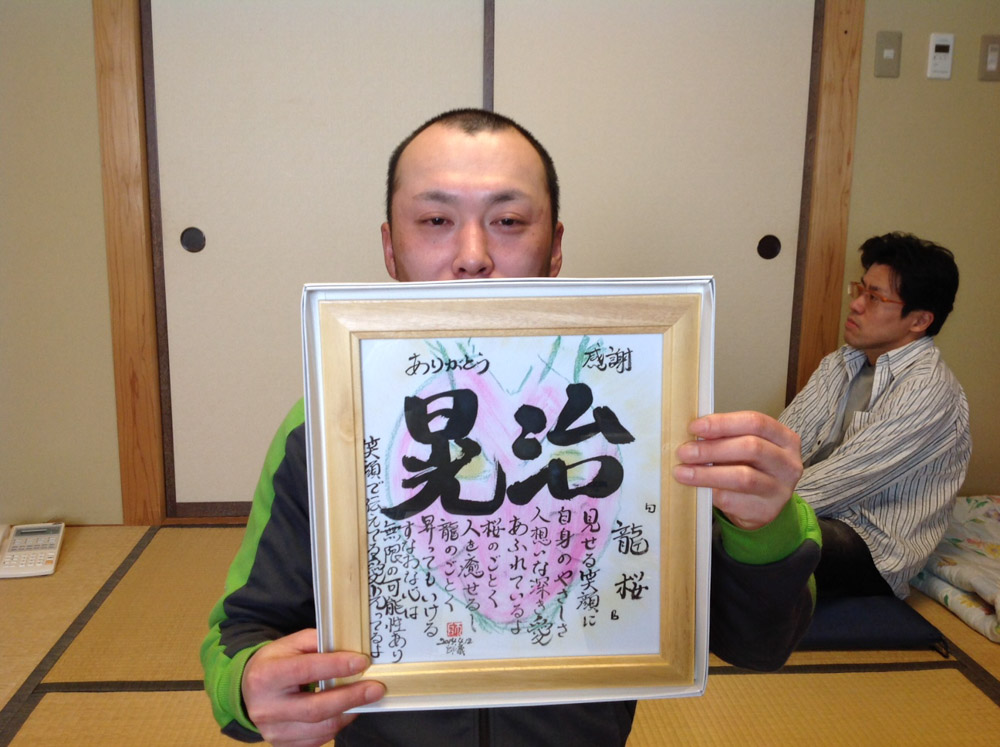 感謝
ありがとう
晃治
龍桜
見せる笑顔に
自身のやさしさ
人想いな深き愛
あふれているよ
桜のごとく
人を癒せるし
龍のごとく
昇ってもいける
すなおな心は
無限の可能性あり
笑顔で伝えてる愛